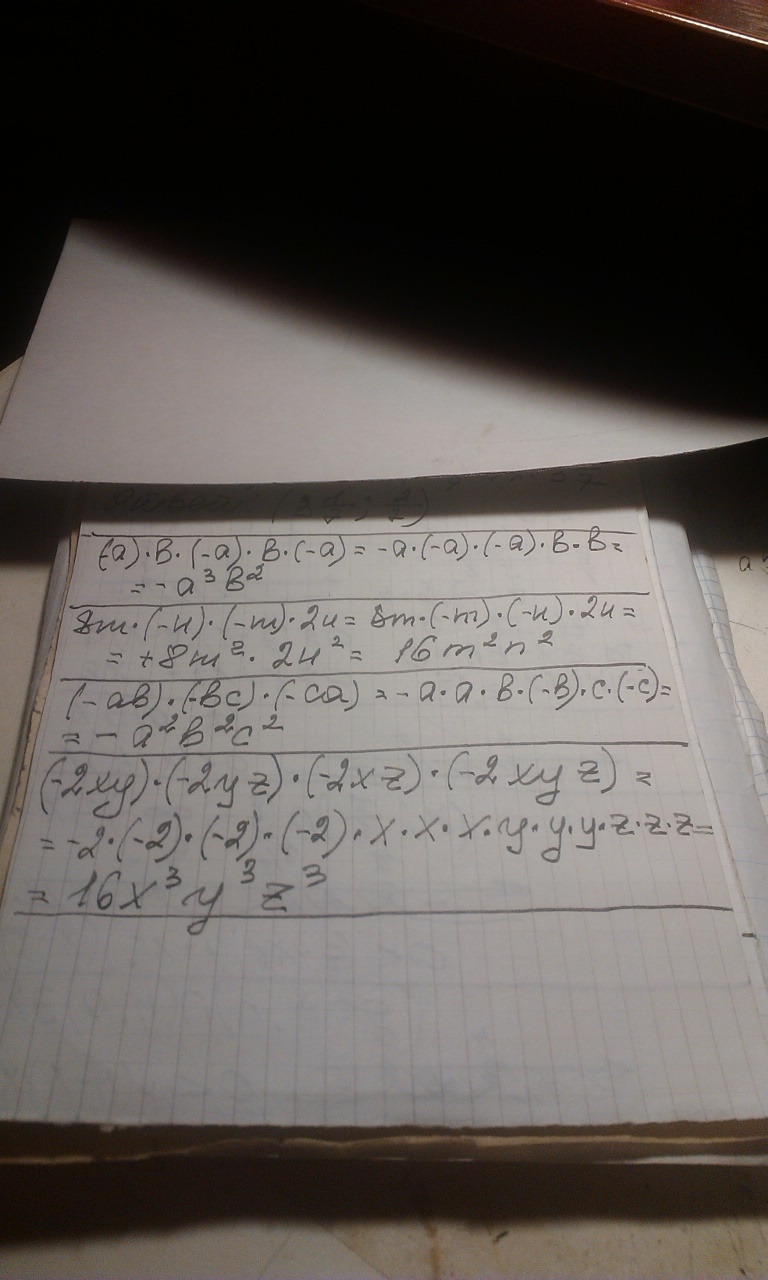 (-a)·в·(-a)·в·(-a) = -a·(-a)·(-a)·в·в=
= - a³в²
8m·(-n)·(-m)·2n= 8m·(-m)·(-n)·2n=
= +8m²·2n²= 16m²n²
(-aв)·(-вc)·(-ca) = -a·a·в·(-в)·c·(-c)=
= - a²в²c²
(-2xy)·(-2yz)·(-2xz)·(-2xyz) =
= -2·(-2)·(-2)·(-2)·x·x·x·y·y·y·z·z·z=
= 16x³y³z³